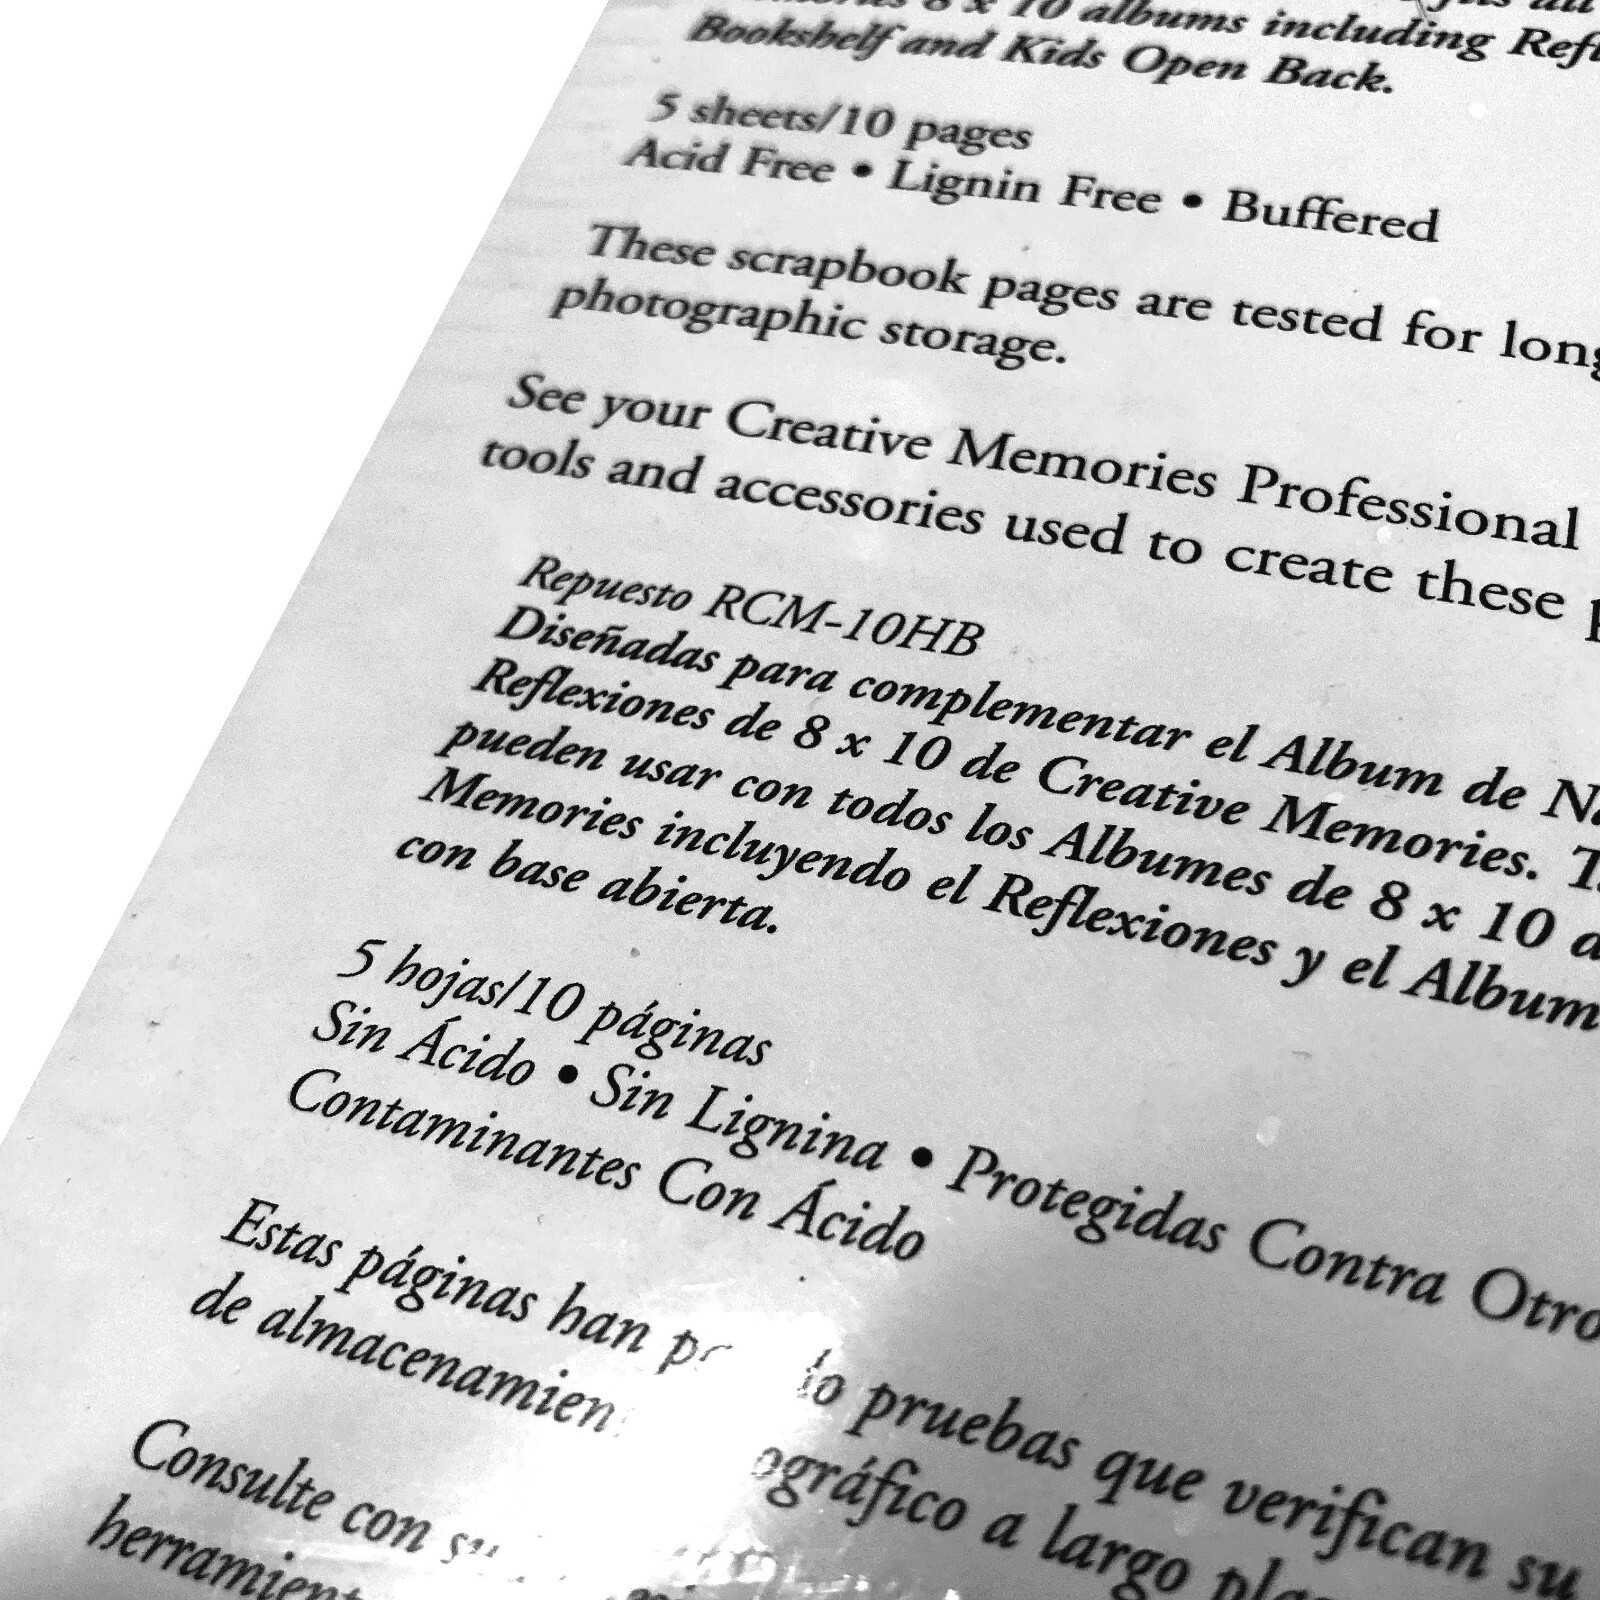 8 x 10 albums including
Bookshelf and Kids Open Back.
5 sheets/10 pages
Acid Free • Lignin Free • Buffered
These scrapbook pages are tested for
photographic storage.
See your Creative Memories Professional
tools and accessories used to create these
Repuesto RCM-10HB
Diseñadas para complementar el Album de
Reflexiones de 8 x 10 de Creative Memories.
pueden usar con todos los Albumes de 8 x 10
Memories incluyendo el Reflexiones y el Album
con base abierta.
5 hojas/10 páginas
Sin Ácido • Sin Lignina • Protegidas Contra
Contaminantes Con Ácido
Estas páginas han pruebas que verifican su
de a largo
Consulte con